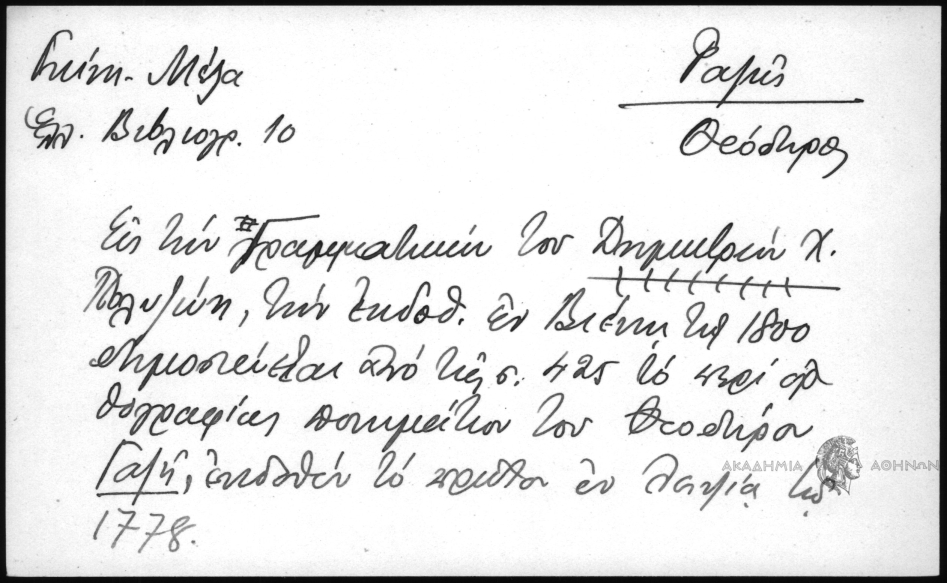 Γκίνη - Μέξα
Ελλ. Βιβλιογρ. 10
Γαζῆς
Θεόδωρος
Εἰς τὴν Γραμματικὴν του Δημητρίου Χ.
Πολυζώη, τὴν ἐκδοθ. ἐν Βιέννῃ τῷ 1800
δημοσιεύεται ἀπό τῆς σ. 425 τό περί ορ
θογραφίας ποιημάτιον του Θεοδώρου
Γαζῆ, ἐκδοθέν τό πρῶτον ἐν Λειψίᾳ τῷ
1778.
ΑΚΑΔΗΜΙΑ ΑΘΗΝΩΝ